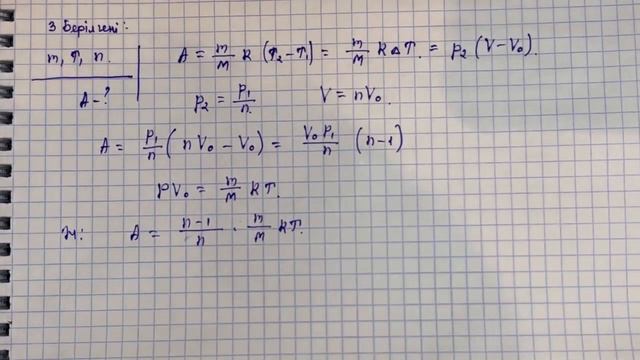 3 Берілгені:
m, T, n.
A - ?
A = m/M R (T₂ - T₁) = m/M R Δ T. = p₂ (V - V₀).
p₂ = p₁/n. V = nV₀.
A = p₁/n (n V₀ - V₀) = V₀ p₁/n (n-1)
pV₀ = m/M RT.
Ж: A = n-1/n · m/M RT.